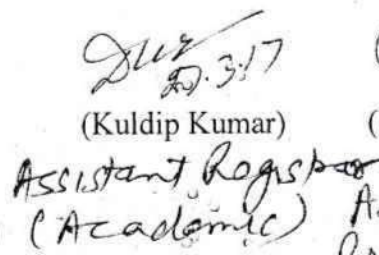 27.3.17
(
(Kuldip Kumar) (
Assistant Registrar
(Academic) A